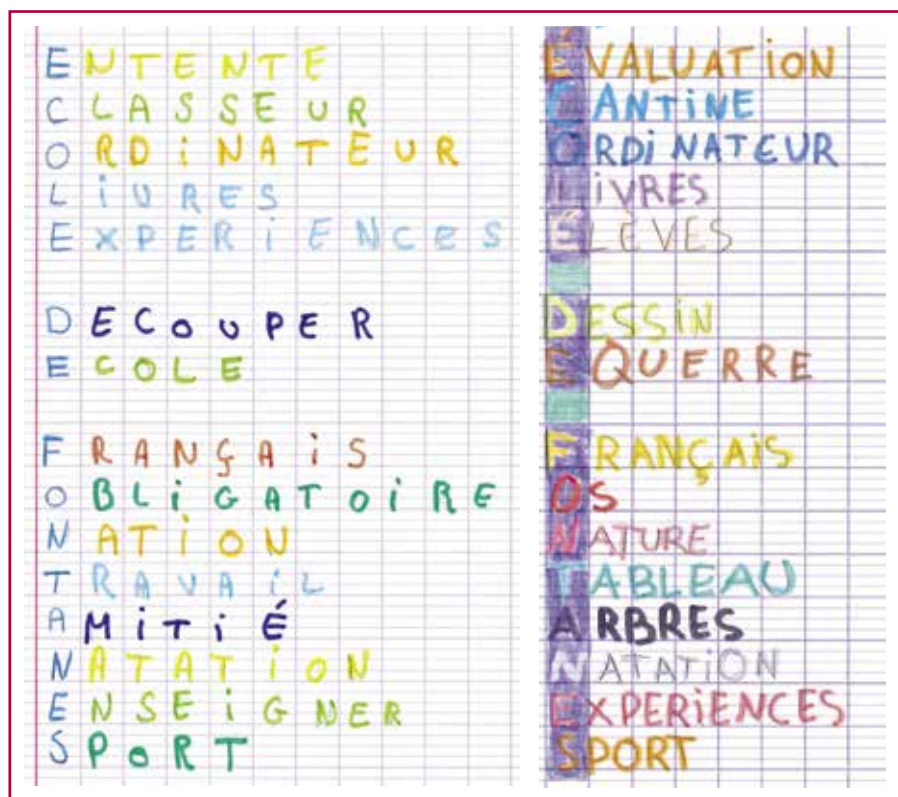 ENTENTE
CLASSEUR
ORDiNATEUR
LiVRES
EXPERiENCeS
DECOUPER
ECOLE
FRANÇAiS
OBLiGATOiRE
NATiON
TRAVAiL
AMiTiÉ
NATATiON
ENSEiGNER
SPORT
ÉVALUATiON
CANTiNE
ORDiNATEUR
LiVRES
ÉLÈVES
DESSiN
EQUERRE
FRANÇAiS
OS
NATURE
TABLEAU
ARBRES
NATATiON
EXPERiENCES
SPORT